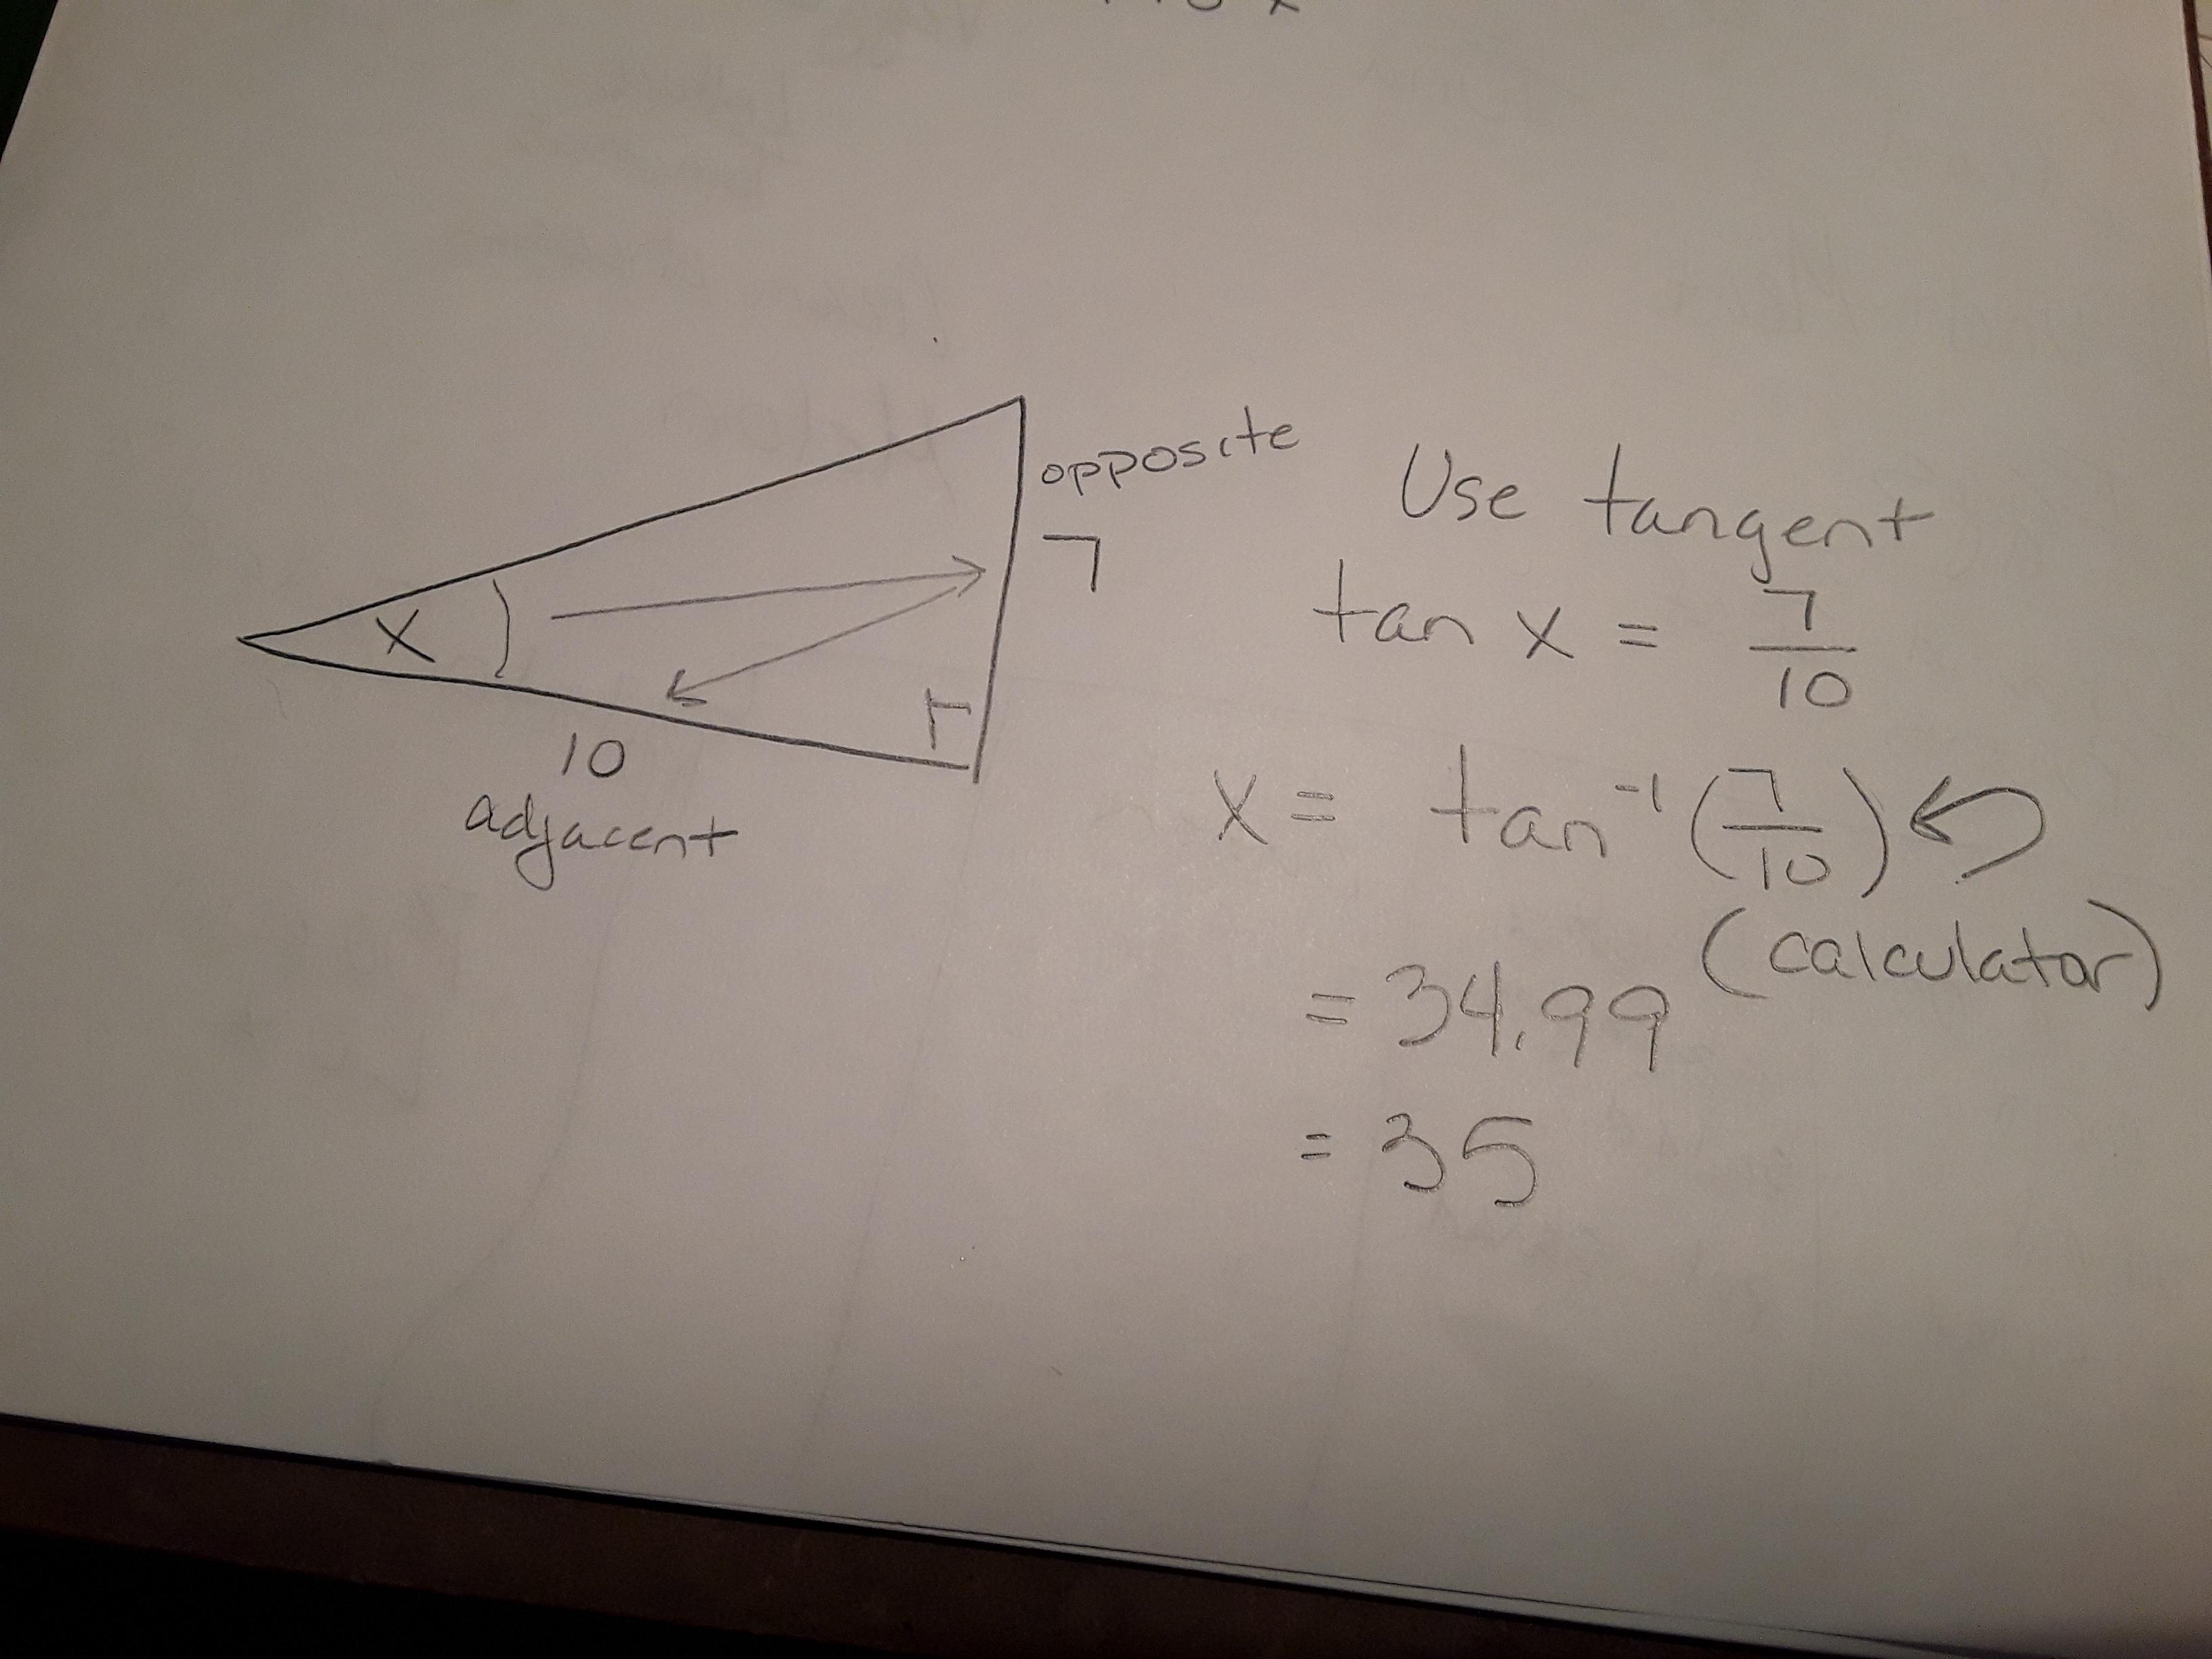 x
opposite
7
10
adjacent
Use tangent
tan x = 7/10
x = tan⁻¹(7/10)
(calculator)
= 34.99
= 35